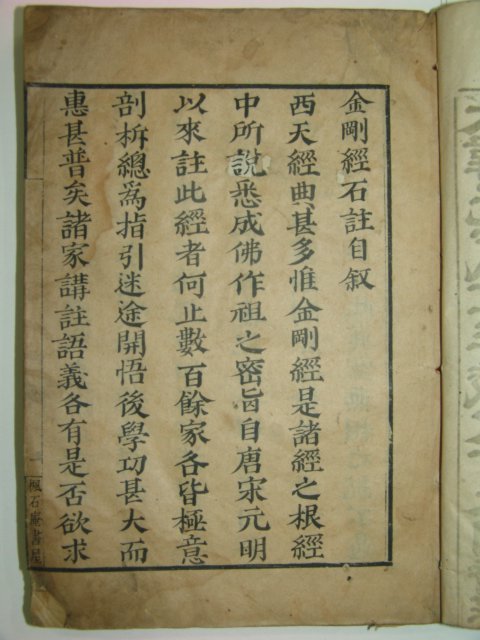 金剛經石註自叙
西天經典甚多惟金剛經是諸經之根經
中所說悉成佛作祖之密旨自唐宋元明
以來註此經者何止數百餘家各皆極意
剖析總為指引迷途開悟後學功甚大而
惠甚普矣諸家講註語義各有是否欲求
楓石庵書屋